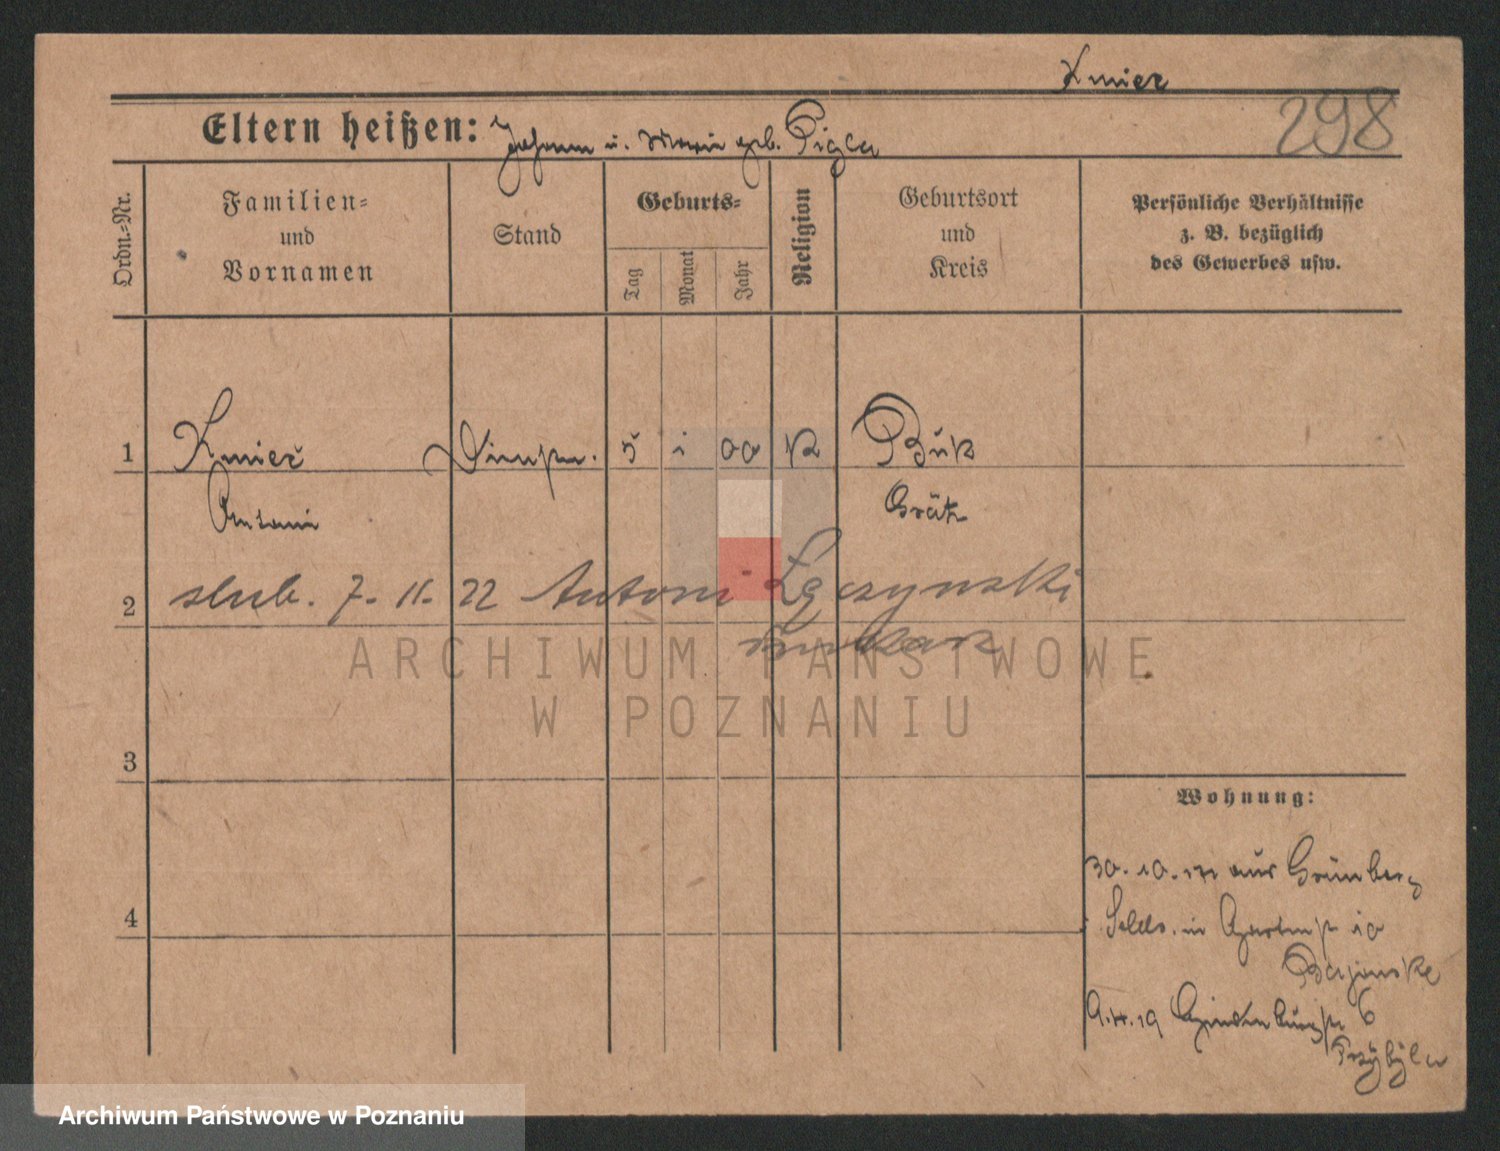 Kmier
298
Eltern heißen: Johann u. Marie geb. Pigla
Ordn.-Nr.
Familien- und Vornamen
Stand
Geburts-
Tag
Monat
Jahr
Religion
Geburtsort und Kreis
Persönliche Verhältnisse z. B. bezüglich des Gewerbes usw.
1 Kmieč 5 1 00 K Buk
Antoni Grätz
2 slub. 7-11-22 Antoni Łączynski
ARCHIWUM PAŃSTWOWE
W POZNANIU
3
Wohnung:
30.10. aus Grünberg
4
in Gartenstr 10
9.4.19 Hindenburgstr 6
Przybyla
Archiwum Państwowe w Poznaniu